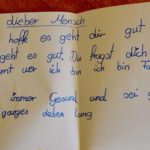 dieber Mensch
hoffe es geht dir gut
geht es gut. Du fragst dich
mt wer ich bin ich bin
immer Gesund und sei
ganzes deben lang